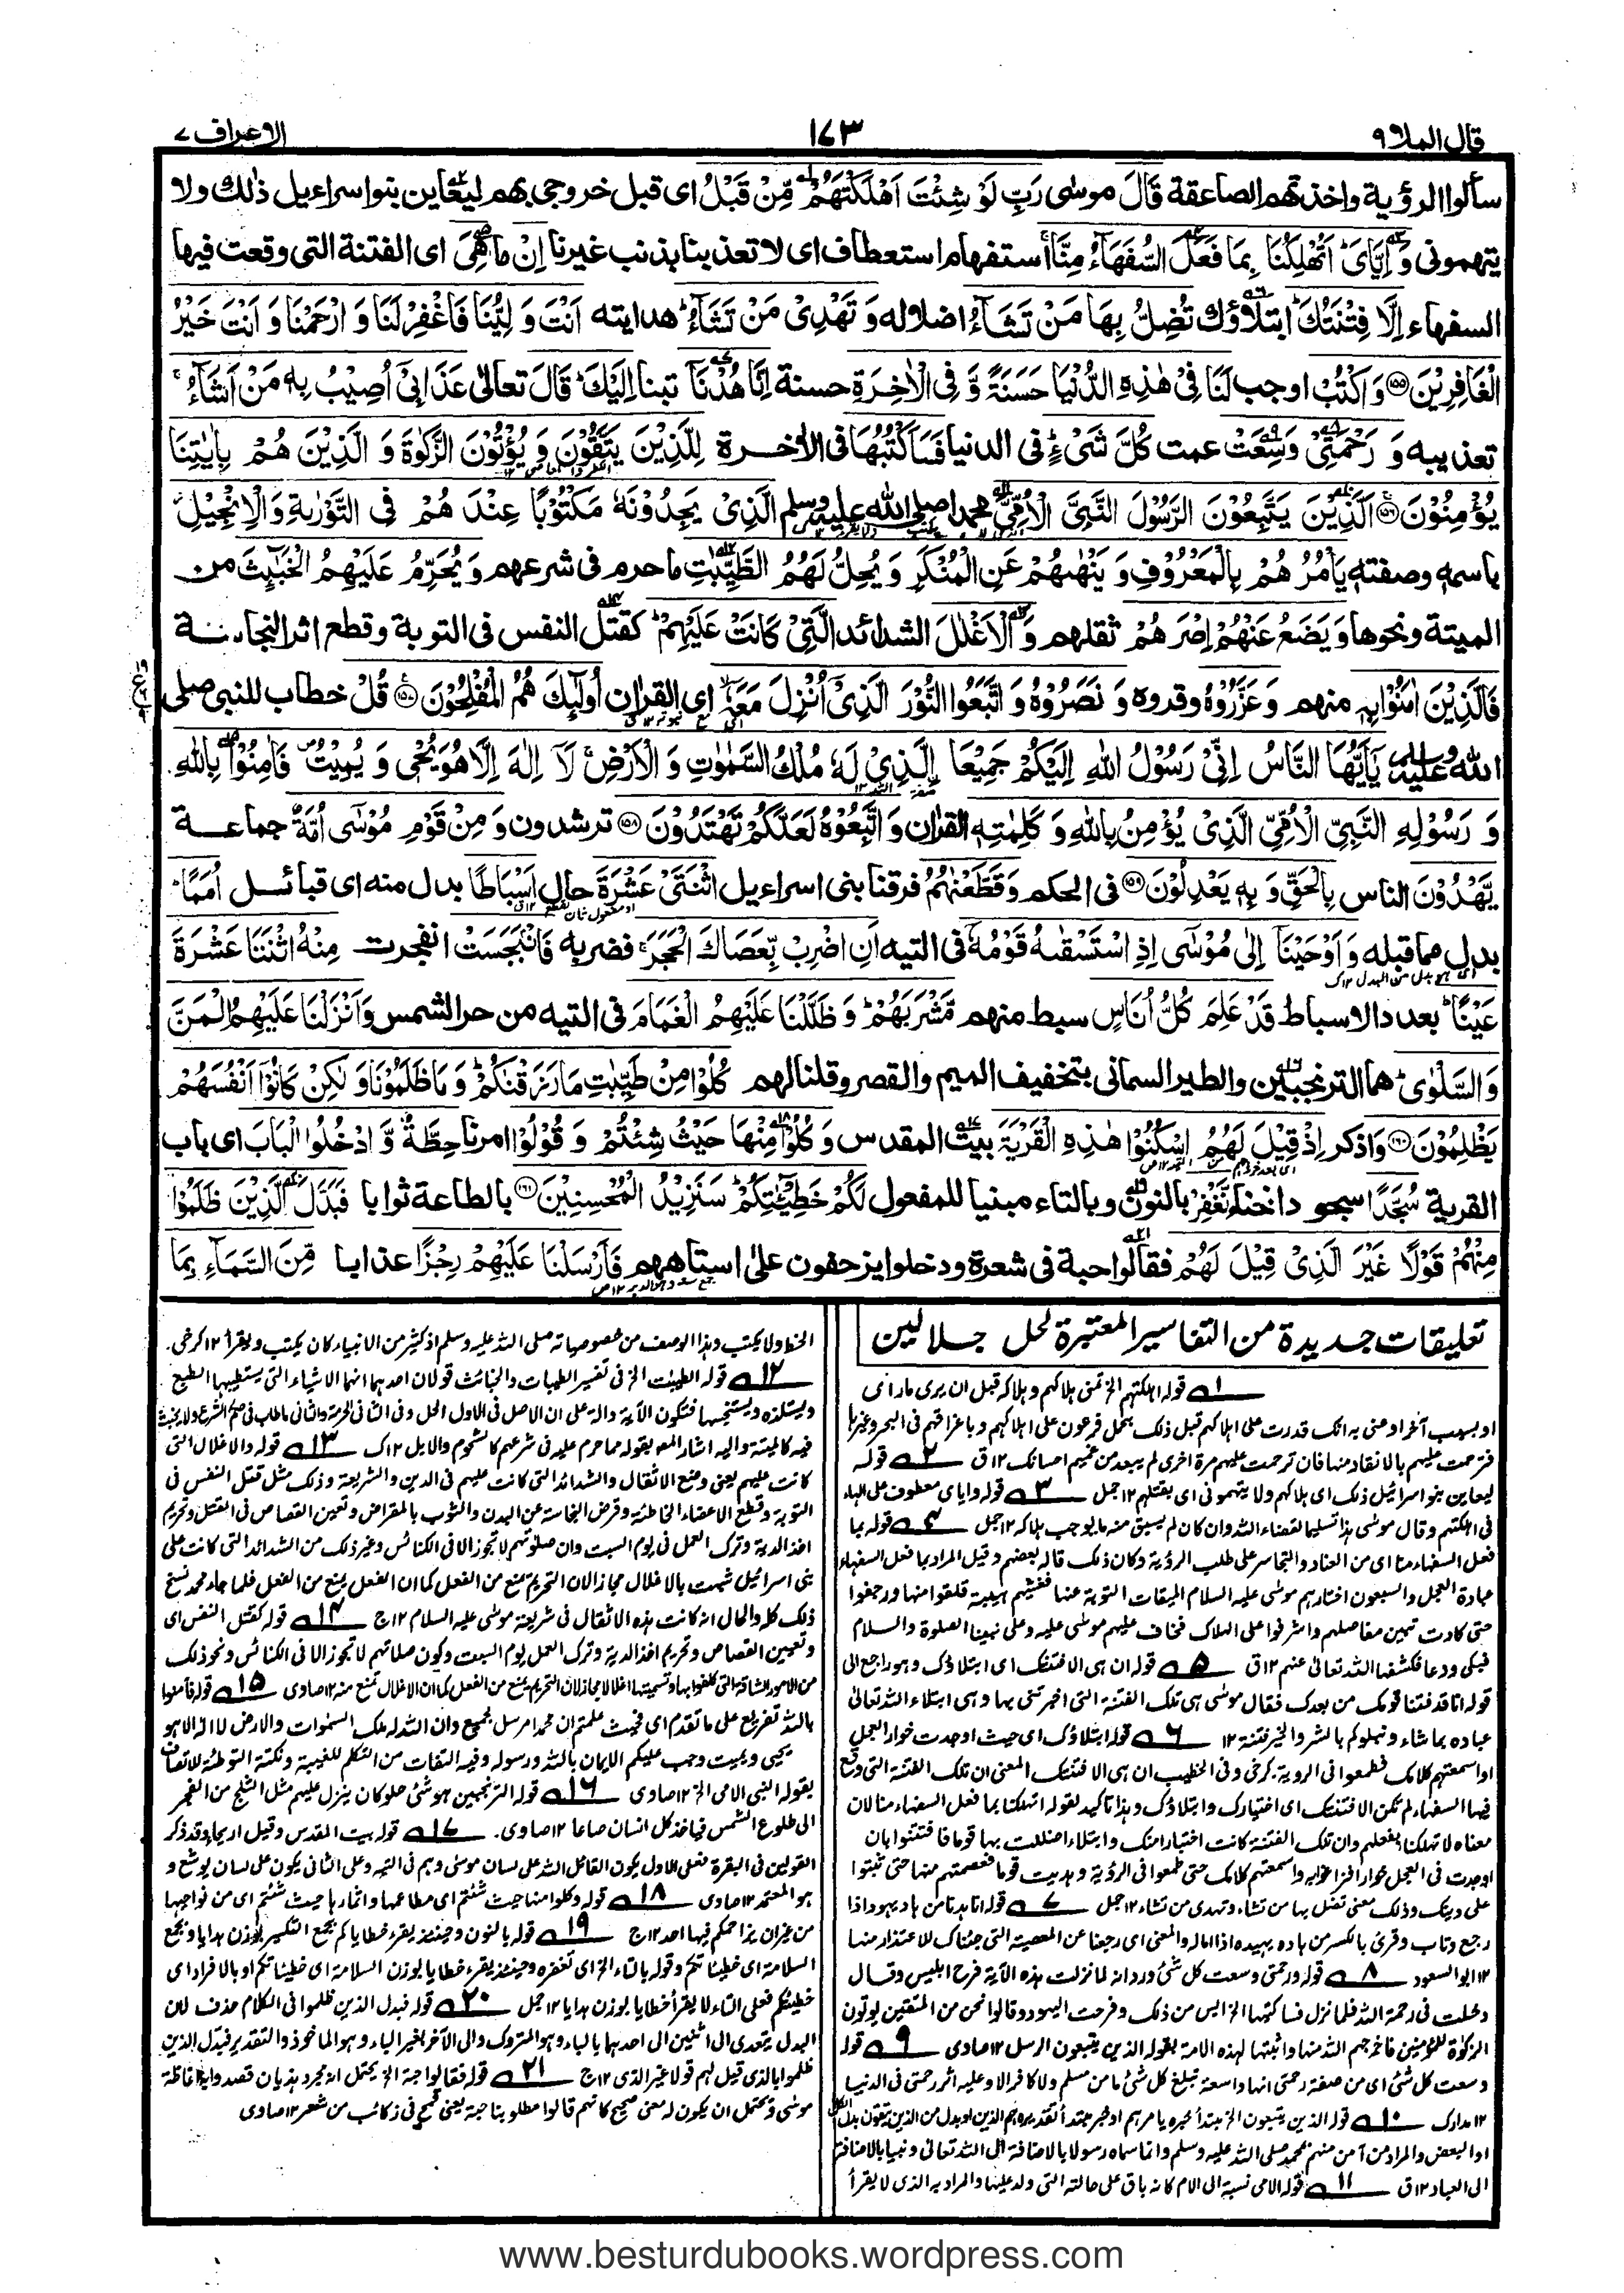 قال الملا ٩
١٤٣
الاعراف ٧
سألوا الرؤية واخذتهم الصاعقة قَالَ موسٰى رَبِّ لَوْ شِئْتَ اَهْلَكْتَهُمْ مِّنْ قَبْلُ اى قبل خروجى بهم ليعاين بنواسراءيل ذٰلك ولا
يتهمونى وَ اِيَّاىَ اَتُهْلِكُنَا بِمَا فَعَلَ السُّفَهَآءُ مِنَّا استفهام استعطاف اى لا تعذبنا بذنب غيرنا اِنْ ما هِىَ اى الفتنة التى وقعت فيها
السفهاء اِلَّا فِتْنَتُكَ ابتلاؤك تُضِلُّ بِهَا مَنْ تَشَآءُ اضلاله وَ تَهْدِىْ مَنْ تَشَآءُ هدايته اَنْتَ وَلِيُّنَا فَاغْفِرْ لَنَا وَ ارْحَمْنَا وَ اَنْتَ خَيْرُ
الْغَافِرِيْنَ ١٥٥ وَ اكْتُبْ اوجب لَنَا فِىْ هٰذِهِ الدُّنْيَا حَسَنَةً وَّ فِى الْاٰخِرَةِ حسنة اِنَّا هُدْنَآ تبنا اِلَيْكَ قَالَ تعالىٰ عَذَابِىْ اُصِيْبُ بِهٖ مَنْ اَشَآءُ
تعذيبه وَ رَحْمَتِىْ وَسِعَتْ عمت كُلَّ شَىْءٍ فى الدنيا فَسَاَكْتُبُهَا فى الاٰخرة لِلَّذِيْنَ يَتَّقُوْنَ وَ يُؤْتُوْنَ الزَّكٰوةَ وَ الَّذِيْنَ هُمْ بِاٰيٰتِنَا
يُؤْمِنُوْنَ ١٥٦ اَلَّذِيْنَ يَتَّبِعُوْنَ الرَّسُوْلَ النَّبِىَّ الْاُمِّىَّ محمدا صلى الله عليه وسلم الَّذِىْ يَجِدُوْنَهٗ مَكْتُوْبًا عِنْدَ هُمْ فِى التَّوْرٰىةِ وَ الْاِنْجِيْلِ
باسمه وصفته يَاْمُرُ هُمْ بِالْمَعْرُوْفِ وَ يَنْهٰىهُمْ عَنِ الْمُنْكَرِ وَ يُحِلُّ لَهُمُ الطَّيِّبٰتِ ما حرم فى شرعهم وَ يُحَرِّمُ عَلَيْهِمُ الْخَبٰٓئِثَ من
الميتة ونحوها وَ يَضَعُ عَنْهُمْ اِصْرَ هُمْ ثقلهم وَ الْاَغْلٰلَ الشدائد الَّتِىْ كَانَتْ عَلَيْهِمْ كقتل النفس فى التوبة وقطع اثر النجاسة
فَالَّذِيْنَ اٰمَنُوْا بِهٖ منهم وَ عَزَّرُوْهُ وقروه وَ نَصَرُوْهُ وَ اتَّبَعُوا النُّوْرَ الَّذِىْٓ اُنْزِلَ مَعَهٗٓ اى القراٰن اُولٰٓئِكَ هُمُ الْمُفْلِحُوْنَ قُلْ خطاب للنبى صلى
الله عليه وسلم يٰٓاَيُّهَا النَّاسُ اِنِّىْ رَسُوْلُ اللهِ اِلَيْكُمْ جَمِيْعَا الَّذِىْ لَهٗ مُلْكُ السَّمٰوٰتِ وَ الْاَرْضِ لَآ اِلٰهَ اِلَّا هُوَ يُحْىٖ وَ يُمِيْتُ فَاٰمِنُوْا بِاللهِ
وَ رَسُوْلِهِ النَّبِىِّ الْاُمِّىِّ الَّذِىْ يُؤْمِنُ بِاللهِ وَ كَلِمٰتِهٖ القراٰن وَ اتَّبِعُوْهُ لَعَلَّكُمْ تَهْتَدُوْنَ ١٥٨ ترشدون وَ مِنْ قَوْمِ مُوْسٰٓى اُمَّةٌ جماعة
يَّهْدُوْنَ الناس بِالْحَقِّ وَ بِهٖ يَعْدِلُوْنَ ١٥٩ فى الحكم وَ قَطَّعْنٰهُمُ فرقنا بنى اسراءيل اثْنَتَىْ عَشْرَةَ حال اَسْبَاطًا بدل منه اى قبائل اُمَمًا
بدل مما قبله وَ اَوْحَيْنَآ اِلٰى مُوْسٰٓى اِذِ اسْتَسْقٰىهُ قَوْمُهٗٓ فى التيه اَنِ اضْرِبْ بِّعَصَاكَ الْحَجَرَ فضربه فَانْۢبَجَسَتْ انفجرت مِنْهُ اثْنَتَا عَشْرَةَ
عَيْنًا بعدد الاسباط قَدْ عَلِمَ كُلُّ اُنَاسٍ سبط منهم مَّشْرَبَهُمْ وَ ظَلَّلْنَا عَلَيْهِمُ الْغَمَامَ فى التيه من حر الشمس وَ اَنْزَلْنَا عَلَيْهِمُ الْمَنَّ
وَ السَّلْوٰى هما الترنجبين والطير السمانى بتخفيف الميم والقصر وقلنا لهم كُلُوْا مِنْ طَيِّبٰتِ مَا رَزَقْنٰكُمْ وَ مَا ظَلَمُوْنَا وَ لٰكِنْ كَانُوْٓا اَنْفُسَهُمْ
يَظْلِمُوْنَ ١٦٠ وَ اذكر اِذْ قِيْلَ لَهُمُ اسْكُنُوْا هٰذِهِ الْقَرْيَةَ بيت المقدس وَ كُلُوْا مِنْهَا حَيْثُ شِئْتُمْ وَ قُوْلُوْا امرنا حِطَّةٌ وَّ ادْخُلُوا الْبَابَ اى باب
القرية سُجَّدًا سجود انحناء نَّغْفِرْ بالنون وبالتاء مبنيا للمفعول لَكُمْ خَطِيْٓئٰتِكُمْ سَنَزِيْدُ الْمُحْسِنِيْنَ ١٦١ بالطاعة ثوابا فَبَدَّلَ الَّذِيْنَ ظَلَمُوْا
مِنْهُمْ قَوْلًا غَيْرَ الَّذِىْ قِيْلَ لَهُمْ فقالوا حبة فى شعرة ودخلوا يزحفون علىٰ استاههم فَاَرْسَلْنَا عَلَيْهِمْ رِجْزًا عذابا مِّنَ السَّمَآءِ بِمَا
تعليقات جديدة من التفاسير المعتبرة لحل جلالين
١ قوله اهلكتهم الخ تمنى هلاكهم وهلاكه قبل ان يرى ما رأى
او بسبب آخر او عنى به انك قدرت على اهلاكهم قبل ذلك بحمل فرعون على اهلاكهم وباغراقهم فى البحر وغيرها
فترحمت عليهم بالانقاذ منها فان ترحمت عليهم مرة اخرى لم يبعد من عميم احسانك ١٢ق ٢ قوله
ليعاين بنو اسرائيل ذلك اى هلاكهم ولا يتهمونى اى بقتلهم ١٢جمل ٣ قوله واياى معطوف على الهاء
فى اهلكتهم وقال موسى هذا تسليما لقضاء الله وان كان لم يسبق منه ما يوجب هلاكه ١٢جمل ٤ قوله بما
فعل السفهاء منا اى من العناد والتجاسر على طلب الرؤية وكان ذلك قاله بعضهم وقيل المراد بما فعل السفهاء
عبادة العجل والسبعون اختارهم موسى عليه السلام لميقات التوبة عنها فغشيهم هيبة قلقوا منها ورجفوا
حتى كادت تبين مفاصلهم واشرفوا على الهلاك فخاف عليهم موسى عليه وعلى نبينا الصلوة والسلام
فبكى ودعا فكشفها الله تعالى عنهم ١٢ق ٥ قوله ان هى الا فتنتك اى ابتلاؤك وهو راجع الى
قوله انا قد فتنا قومك من بعدك فقال موسى هى تلك الفتنة التى اخبرتنى بها وهى ابتلاء الله تعالى
عباده بما شاء ونبلوكم بالشر والخير فتنة ١٢ ٦ قوله ابتلاؤك اى حيث اوجدت خوار العجل
او اسمعتهم كلامك فطمعوا فى الروية. كرخى وفى الخطيب ان هى الا فتنتك المعنى ان تلك الفتنة التى وقع
فيها السفهاء لم تكن الا فتنتك اى اختبارك وابتلاؤك وهذا تاكيد لقوله اتهلكنا بما فعل السفهاء منا لان
معناه لا تهلكنا بفعلهم وان تلك الفتنة كانت اختبارا منك وابتلاء اضللت بها قوما فافتتنوا بان
اوجدت فى العجل خوارا فزاغوا به واسمعتهم كلامك حتى طمعوا فى الرؤية وهديت قوما فعصمتهم منها حتى ثبتوا
على دينك وذلك معنى تضل بها من تشاء وتهدى من تشاء ١٢جمل ٧ قوله انا هدنا من هاد يهود اذا
رجع وتاب وقرئ بالكسر من هاده يهيده اذا اماله والمعنى اى رجعنا عن المعصية التى جئناك للاعتذار منها
١٢ابو السعود ٨ قوله ورحمتى وسعت كل شئ ورد انه لما نزلت هذه الآية فرح ابليس وقال
دخلت فى رحمة الله فلما نزل فساكتبها الخ ايس من ذلك وفرحت اليهود وقالوا نحن من المتقين يؤتون
الزكوة المؤمنين فاخرجهم الله منها واثبتها لهذه الامة بقوله الذين يتبعون الرسل ١٢صاوى ٩ قوله
وسعت كل شئ اى من صفة رحمتى انها واسعة تبلغ كل شئ ما من مسلم ولا كافر الا وعليه اثر رحمتى فى الدنيا
١٢مدارك ١٠ قوله الذين يتبعون الخ مبتدأ خبره يامرهم او خبر مبتدأ تقديره هم الذين او بدل من الذين يتقون بدل الكل
او البعض والمراد من آمن منهم بمحمد صلى الله عليه وسلم وانما سماه رسولا بالاضافة الى الله تعالى ونبيا بالاضافة
الى العباد ١٢ق ١١ قوله الامى نسبة الى الام كانه باق على حالته التى ولد عليها والمراد به الذى لا يقرأ
الخط ولا يكتب وهذا الوصف من خصوصياته صلى الله عليه وسلم اذ كثير من الانبياء كان يكتب ويقرأ ١٢كرخى.
١٢ قوله الطيبت الخ فى تفسير الطيبات والخبائث قولان احدهما انها الاشياء التى يستطيبها الطبع
ويستلذه ويستخبثها فتكون الآية دالة على ان الاصل فى الاول الحل وفى الثانى الحرمة والثانى ما طاب فى حكم الشرع وما يخبث
فيه كالميتة واليه اشار المصـ بقوله مما حرم عليه فى شرعهم كالشحوم والابل ١٢ك ١٣ قوله والاغلال التى
كانت عليهم يعنى وضع الاثقال والشدائد التى كانت عليهم فى الدين والشريعة وذلك مثل قتل النفس فى
التوبة وقطع الاعضاء الخاطئة وقرض النجاسة عن البدن والثوب بالمقراض وتعيين القصاص فى القتل وتحريم
اخذ الدية وترك العمل فى يوم السبت وان صلوتهم لا تجوز الا فى الكنائس وغير ذلك من الشدائد التى كانت على
بنى اسرائيل شبهت بالاغلال مجازا لان التحريم يمنع من الفعل كما ان الغل يمنع من الفعل فلما جاء محمد نسخ
ذلك كله والحال انه كانت هذه الاثقال فى شريعة موسى عليه السلام ١٢ج ١٤ قوله كقتل النفس اى
وتعيين القصاص وتحريم اخذ الدية وترك العمل يوم السبت وكون صلاتهم لا تجوز الا فى الكنائس ونحو ذلك
من الامور الشاقة التى كلفوا بها وتسميتها اغلالا مجاز لان التحريم يمنع من الفعل كما ان الاغلال تمنع منه ١٢صاوى ١٥ قوله فآمنوا
بالله تفريع على ما تقدم اى فحيث علمتم ان محمدا مرسل لجميع وان الله له ملك السموات والارض لا اله الا هو
يحيى ويميت وجب عليكم الايمان بالله ورسوله وفيه التفات من التكلم للغيبة ونكتة التوطئة للاتصاف
بقوله النبى الامى الخ ١٢صاوى ١٦ قوله الترنجبين هو شئ حلو كان ينزل عليهم مثل الثلج من الفجر
الى طلوع الشمس فياخذ كل انسان صاعا ١٢صاوى. ١٧ قوله بيت المقدس وقيل اريحا وقد ذكر
القولين فى البقرة فعلى الاول يكون القائل الله على لسان موسى وهم فى التيه وعلى الثانى يكون على لسان يوشع و
هو المعتمد ١٢صاوى ١٨ قوله وكلوا منها حيث شئتم اى مطاعمها واثمارها حيث شئتم اى من نواحيها
من غير ان يزاحمكم فيها احد ١٢ج ١٩ قوله بالنون وحينئذ يقرء خطاياكم بجمع التكسير بوزن هدايا وبجمع
السلامة اى خطيئاتكم وقوله بالتاء الخ اى تغفره وحينئذ يقرء خطايا بوزن السلامة اى خطيئاتكم او بالافراد اى
خطيئتكم فعلى التاء لا يقرأ خطايا بوزن هدايا ١٢جمل ٢٠ قوله فبدل الذين ظلموا فى الكلام حذف لان
البدل يتعدى الى اثنين الى احدهما بالباء وهو المتروك والى الآخر بغير الباء وهو الماخوذ والتقدير فبدل الذين
ظلموا بالذى قيل لهم قولا غير الذى ١٢ج ٢١ قوله فقالوا حبة الخ يحتمل انه مجرد هذيان قصدوا به اغاظة
موسى ويحتمل ان يكون له معنى صحيح كانهم قالوا مطلوبنا حبة يعنى قمح فى زكائب من شعر ١٢صاوى
www.besturdubooks.wordpress.com